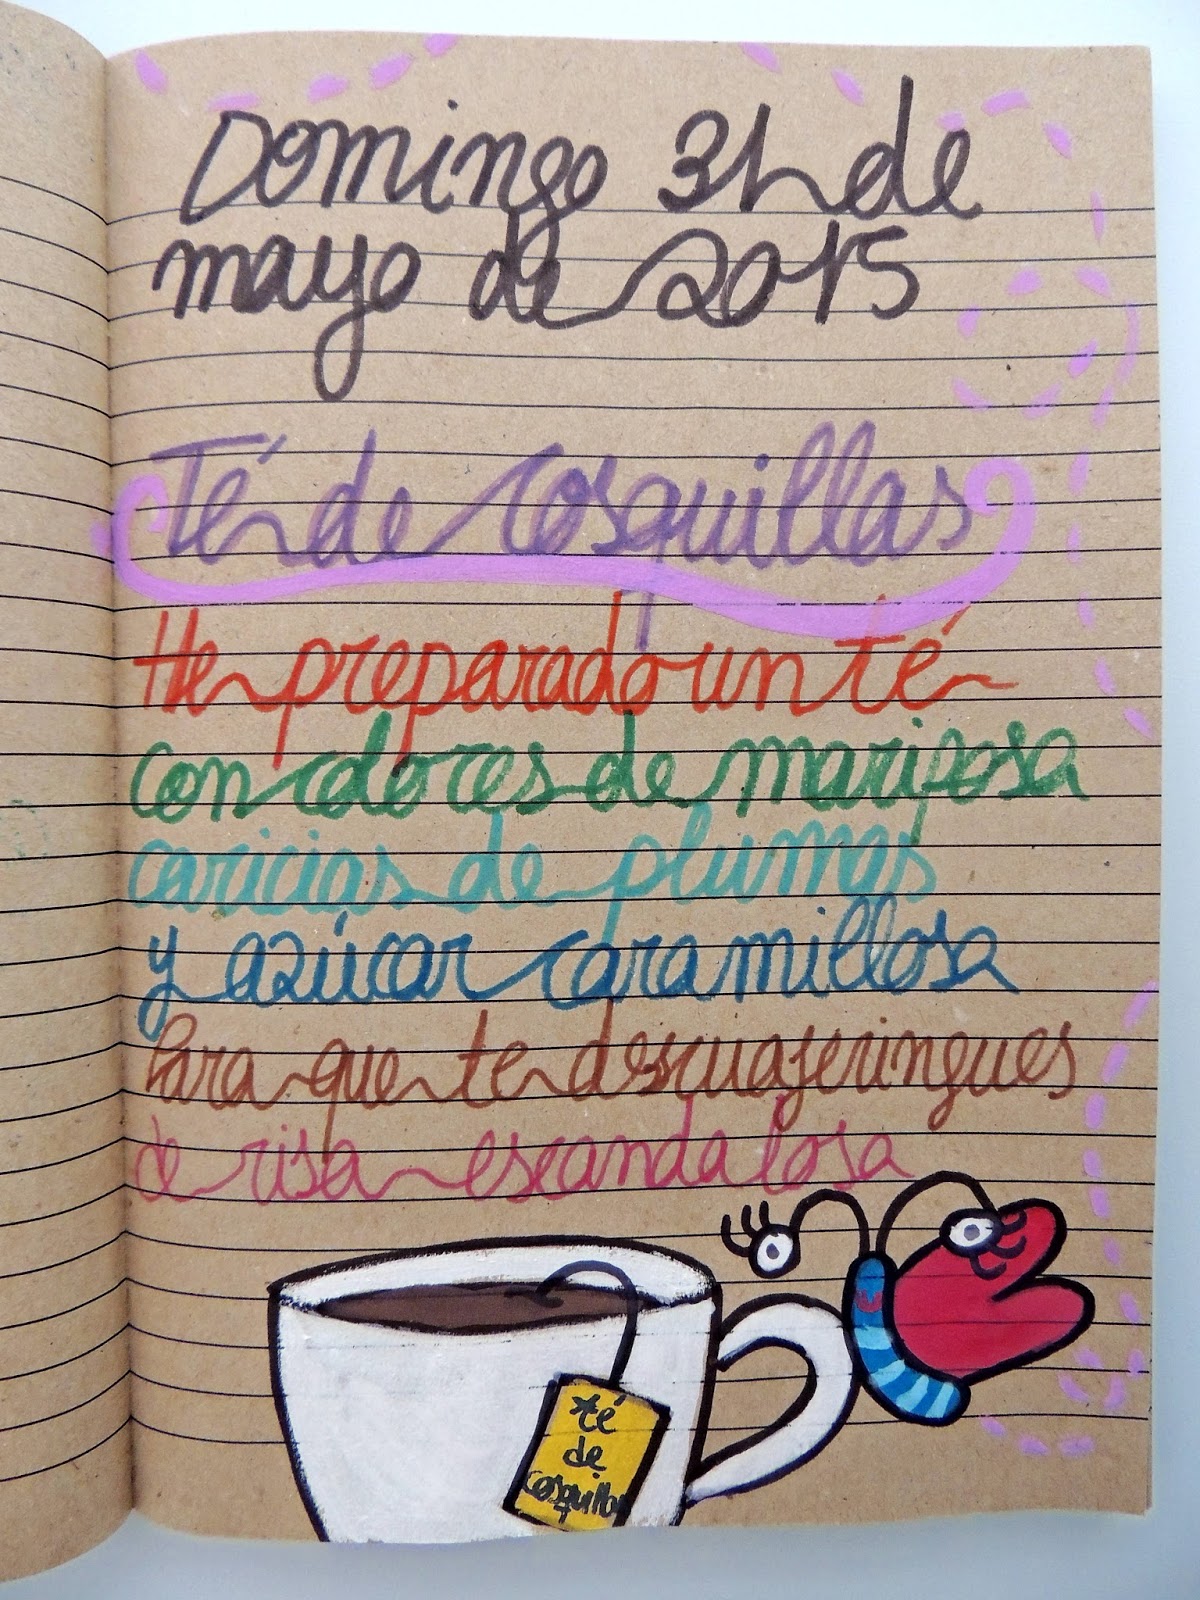 Domingo 31 de
mayo de 2015
Té de cosquillas
He preparado un té
con colores de mariposa
caricias de plumas
y azúcar caramillosa
Para que te descuajeringues
de risa escandalosa
*té
de
cosquillas